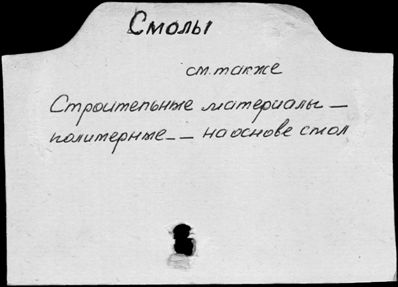 Смолы
см. также
Строительные материалы —
полимерные — — на основе смол